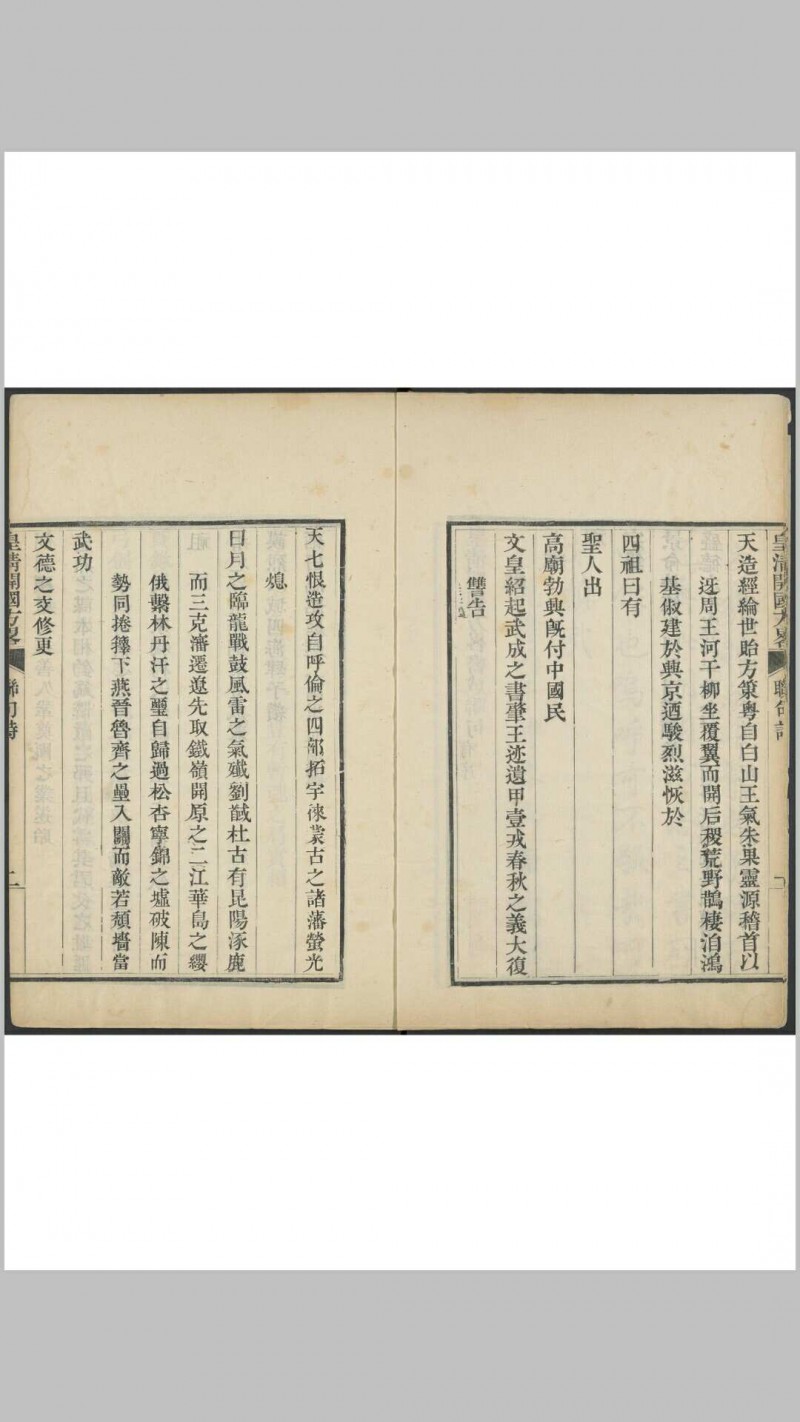 皇清開國方畧 聯句詩
天造經綸世貽方策粵自白山王氣朱果靈源稽首以
迓周王河干柳坐覆翼而開后稷荒野鵲棲泊鴻
基俶建於興京迺駿烈滋恢於
四祖曰有
聖人出
高廟勃興旣付中國民
文皇紹起武成之書肇王迹遺甲壹戎春秋之義大復
讐告
天七恨造攻自呼倫之四部拓宇徠蒙古之諸藩螢光
熄
日月之臨龍戰鼓風雷之氣殲劉馘杜古有昆陽涿鹿
而三克瀋遷遼先取鐵嶺開原之二江華島之纓
俄繫林丹汗之璽自歸過松杏寧錦之墟破陳而
勢同捲籜下燕晉魯齊之壘入關而敵若頹墻當
武功
文德之交修更
皇清開國方畧 聯句詩 二